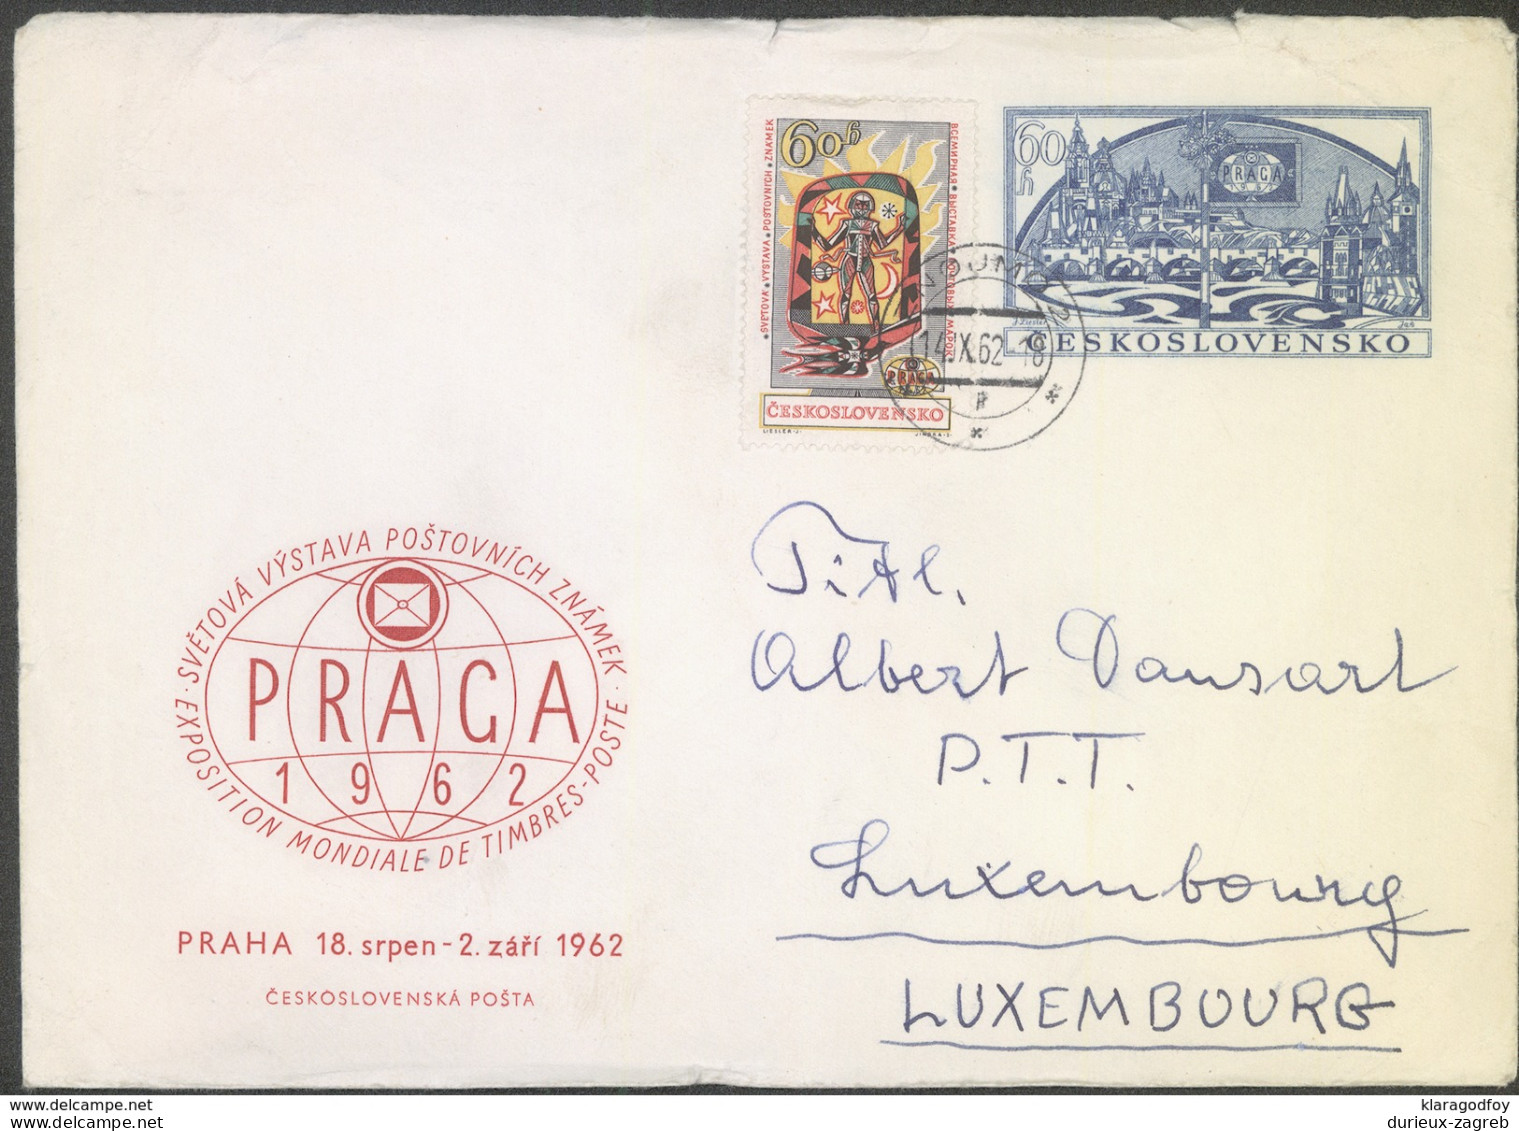 60h
SVĚTOVÁ * VÝSTAVA * POŠTOVNÍCH * ZNÁMEK
ВСЕМИРНАЯ * ВЫСТАВКА * ПОЧТОВЫХ * МАРОК
PRAGA
ČESKOSLOVENSKO
60 h
PRAGA
1962
ČESKOSLOVENSKO
14.IX.62-18
SVĚTOVÁ VÝSTAVA POŠTOVNÍCH ZNÁMEK
PRAGA
1962
EXPOSITION MONDIALE DE TIMBRES-POSTE
PRAHA 18. srpen - 2. září 1962
ČESKOSLOVENSKÁ POŠTA
Titl.
Albert Vansart
P.T.T.
Luxembourg
LUXEMBOURG
www.delcampe.net
www.delcampe.net
klaragodfoy
durieux-zagreb